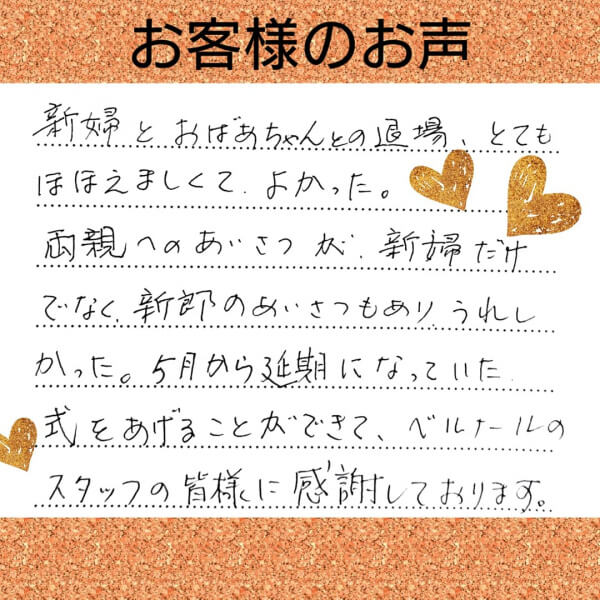 お客様のお声
新婦とおばあちゃんとの退場、とても
ほほえましくて、よかった。
両親へのあいさつが、新婦だけ
でなく、新郎のあいさつもあり、うれし
かった。5月から延期になっていた
式をあげることができて、ベルナールの
スタッフの皆様に感謝しております。